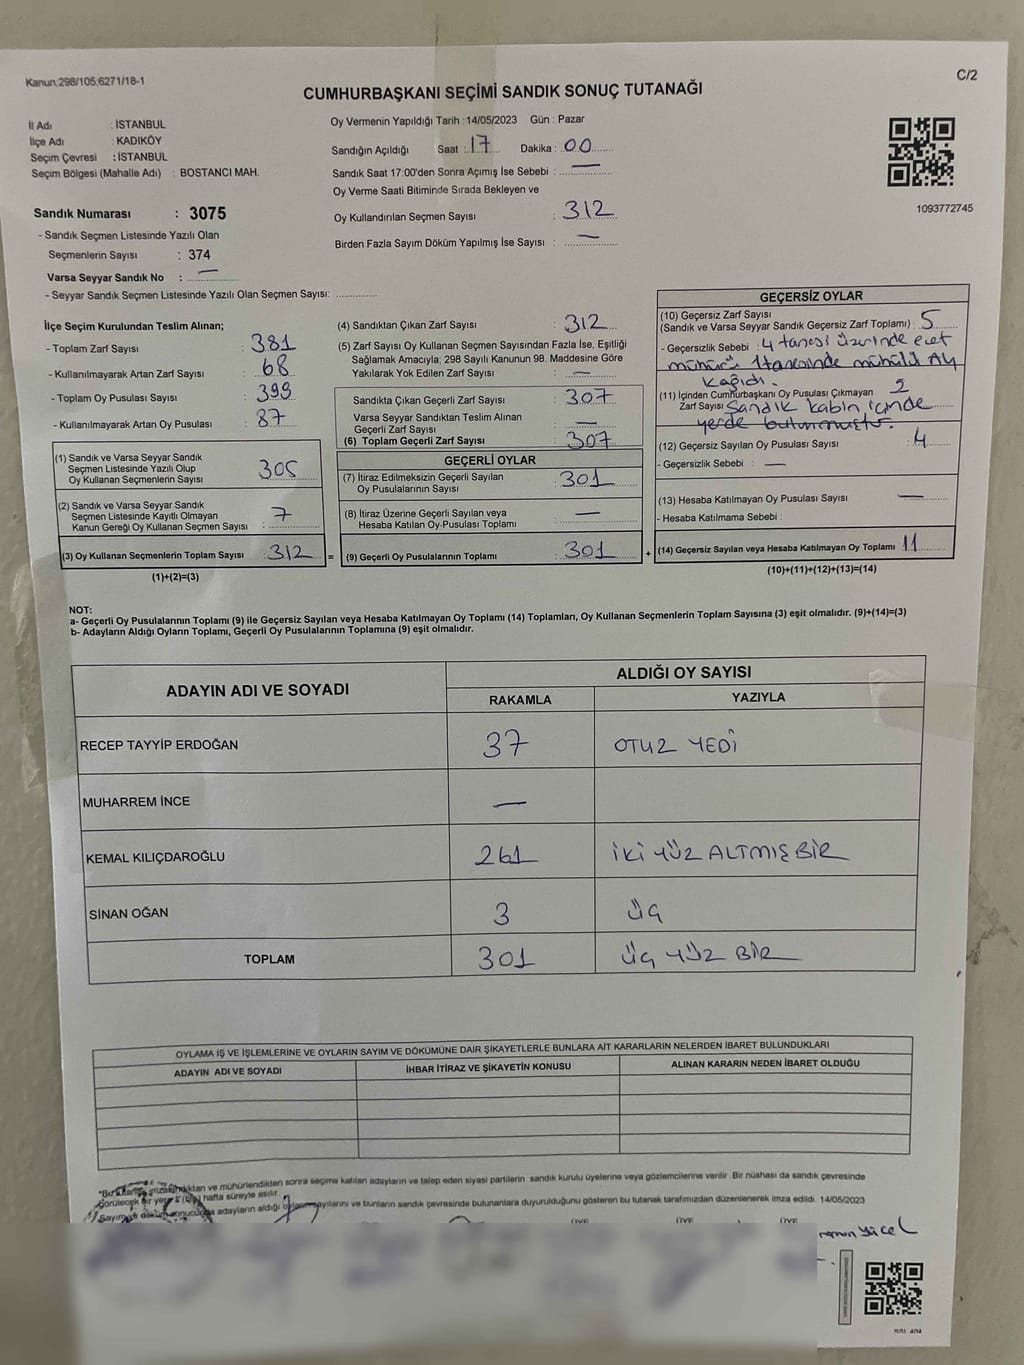 Kanun;298/105;6271/18-1
C/2
CUMHURBAŞKANI SEÇİMİ SANDIK SONUÇ TUTANAĞI
İl Adı : İSTANBUL
İlçe Adı : KADIKÖY
Seçim Çevresi : İSTANBUL
Seçim Bölgesi (Mahalle Adı) : BOSTANCI MAH.
Sandık Numarası : 3075
- Sandık Seçmen Listesinde Yazılı Olan
Seçmenlerin Sayısı : 374
Varsa Seyyar Sandık No : —
- Seyyar Sandık Seçmen Listesinde Yazılı Olan Seçmen Sayısı:
Oy Vermenin Yapıldığı Tarih :14/05/2023 Gün : Pazar
Sandığın Açıldığı Saat : 17 Dakika : 00
Sandık Saat 17:00'den Sonra Açımış İse Sebebi : —
Oy Verme Saati Bitiminde Sırada Bekleyen ve
Oy Kullandırılan Seçmen Sayısı : 312
Birden Fazla Sayım Döküm Yapılmış İse Sayısı : —
1093772745
İlçe Seçim Kurulundan Teslim Alınan;
- Toplam Zarf Sayısı : 381
- Kullanılmayarak Artan Zarf Sayısı : 68
- Toplam Oy Pusulası Sayısı : 399
- Kullanılmayarak Artan Oy Pusulası : 87
(1) Sandık ve Varsa Seyyar Sandık
Seçmen Listesinde Yazılı Olup
Oy Kullanan Seçmenlerin Sayısı : 305
(2) Sandık ve Varsa Seyyar Sandık
Seçmen Listesinde Kayıtlı Olmayan
Kanun Gereği Oy Kullanan Seçmen Sayısı : 7
(3) Oy Kullanan Seçmenlerin Toplam Sayısı : 312 =
(1)+(2)=(3)
(4) Sandıktan Çıkan Zarf Sayısı : 312
(5) Zarf Sayısı Oy Kullanan Seçmen Sayısından Fazla İse, Eşitliği
Sağlamak Amacıyla; 298 Sayılı Kanunun 98. Maddesine Göre
Yakılarak Yok Edilen Zarf Sayısı : —
Sandıkta Çıkan Geçerli Zarf Sayısı : 307
Varsa Seyyar Sandıktan Teslim Alınan
Geçerli Zarf Sayısı : —
(6) Toplam Geçerli Zarf Sayısı : 307
GEÇERLİ OYLAR
(7) İtiraz Edilmeksizin Geçerli Sayılan
Oy Pusulalarının Sayısı : 301
(8) İtiraz Üzerine Geçerli Sayılan veya
Hesaba Katılan Oy Pusulası Toplamı : —
(9) Geçerli Oy Pusulalarının Toplamı : 301 +
GEÇERSİZ OYLAR
(10) Geçersiz Zarf Sayısı
(Sandık ve Varsa Seyyar Sandık Geçersiz Zarf Toplamı) : 5
- Geçersizlik Sebebi : 4 tanesi üzerinde evet
mühürü 1tanesinde mühülü AY
kağıdı.
(11) İçinden Cumhurbaşkanı Oy Pusulası Çıkmayan 2
Zarf Sayısı Sandık kabin içinde
yerde bulunmuştur.
(12) Geçersiz Sayılan Oy Pusulası Sayısı : 4
- Geçersizlik Sebebi : —
(13) Hesaba Katılmayan Oy Pusulası Sayısı —
- Hesaba Katılmama Sebebi :
(14) Geçersiz Sayılan veya Hesaba Katılmayan Oy Toplamı 11
(10)+(11)+(12)+(13)=(14)
NOT:
a- Geçerli Oy Pusulalarının Toplamı (9) ile Geçersiz Sayılan veya Hesaba Katılmayan Oy Toplamı (14) Toplamları, Oy Kullanan Seçmenlerin Toplam Sayısına (3) eşit olmalıdır. (9)+(14)=(3)
b- Adayların Aldığı Oyların Toplamı, Geçerli Oy Pusulalarının Toplamına (9) eşit olmalıdır.
ADAYIN ADI VE SOYADI
ALDIĞI OY SAYISI
RAKAMLA YAZIYLA
RECEP TAYYİP ERDOĞAN 37 OTUZ YEDİ
MUHARREM İNCE —
KEMAL KILIÇDAROĞLU 261 İKİ YÜZ ALTMIŞ BİR
SİNAN OĞAN 3 ÜÇ
TOPLAM 301 ÜÇ YÜZ BİR
OYLAMA İŞ VE İŞLEMLERİNE VE OYLARIN SAYIM VE DÖKÜMÜNE DAİR ŞİKAYETLERLE BUNLARA AİT KARARLARIN NELERDEN İBARET BULUNDUKLARI
ADAYIN ADI VE SOYADI İHBAR İTİRAZ VE ŞİKAYETİN KONUSU ALINAN KARARIN NEDEN İBARET OLDUĞU
ve mühürlendikten sonra seçime katılan adayların ve talep eden siyasi partilerin sandık kurulu üyelerine veya gözlemcilerine verilir. Bir nüshası da sandık çevresinde
görülecek bir yere 1 (bir) hafta süreyle asılır.
Sayım ve döküm sonucunda adayların aldığı oyların sayılarını ve bunların sandık çevresinde bulunanlara duyurulduğunu gösteren bu tutanak tarafımızdan düzenlenerek imza edildi. 14/05/2023
ÜYE ÜYE ÜYE
Yücel